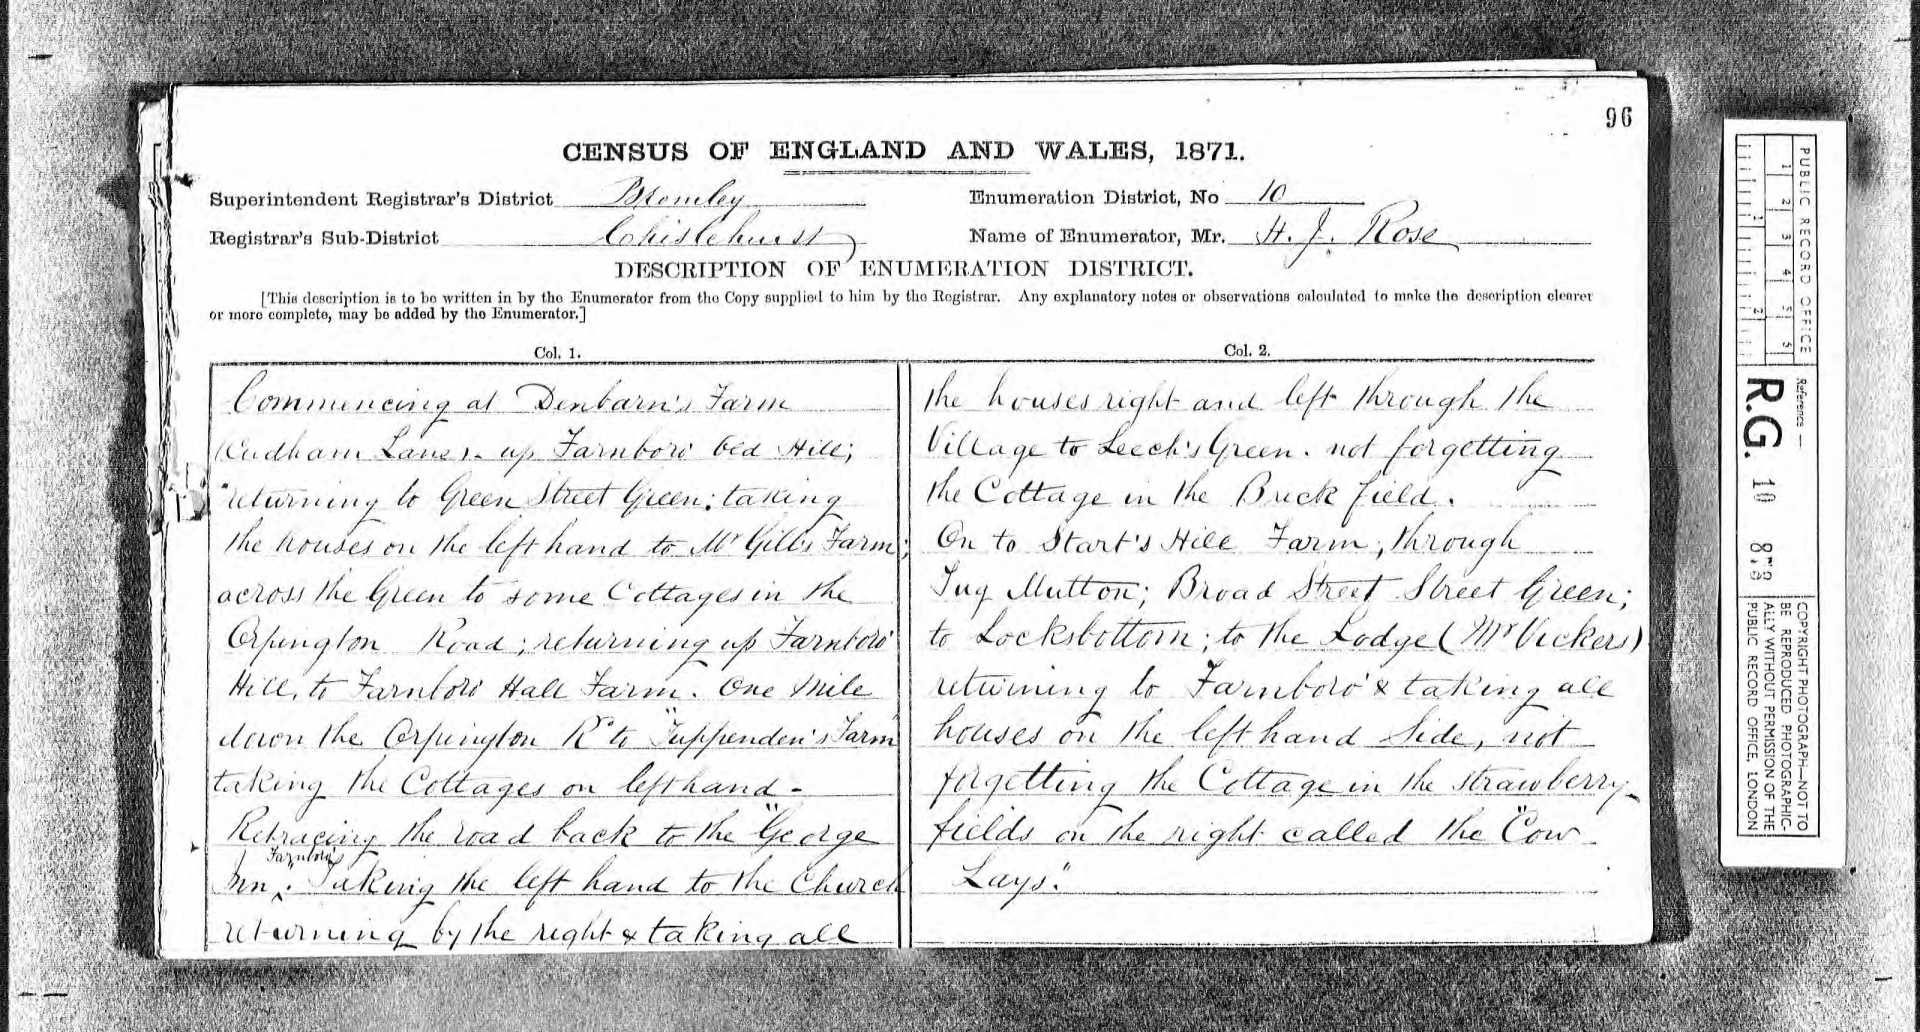 96
CENSUS OF ENGLAND AND WALES, 1871.
Superintendent Registrar's District Bromley
Enumeration District, No 10
Registrar's Sub-District Chislehurst
Name of Enumerator, Mr. H. J. Rose
DESCRIPTION OF ENUMERATION DISTRICT.
[This description is to be written in by the Enumerator from the Copy supplied to him by the Registrar. Any explanatory notes or observations calculated to make the description clearer
or more complete, may be added by the Enumerator.]
Col. 1.
Commencing at Denbarn's Farm
(Cudham Lane). up Farnboro' Old Hill;
returning to Green Street Green; taking
the houses on the left hand to Mr Gill's Farm;
across the Green to some Cottages in the
Orpington Road; returning up Farnboro'
Hill, to Farnboro' Hall Farm. One Mile
down the Orpington Rd to "Tuppenden's Farm"
taking the Cottages on left hand -
Retracing the road back to the "George
Inn". Farnboro' Taking the left hand to the Church
returning by the right & taking all
Col. 2.
the houses right and left through the
Village to Leech's Green. not forgetting
the Cottage in the Brick field.
On to Start's Hill Farm; through
Tug Mutton; Broad Street Street Green;
to Locksbottom; to the Lodge (Mr Vickers)
returning to Farnboro' & taking all
houses on the left hand Side, not
forgetting the Cottage in the strawberry
fields on the right called the "Cow
Lays".
PUBLIC RECORD OFFICE
1 2 3 4 5 5
1 2
Reference:—
R.G. 10 873
COPYRIGHT PHOTOGRAPH—NOT TO
BE REPRODUCED PHOTOGRAPHIC-
ALLY WITHOUT PERMISSION OF THE
PUBLIC RECORD OFFICE, LONDON